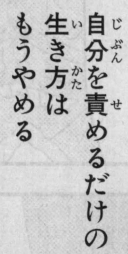 自分を責めるだけの
生き方は
もうやめる